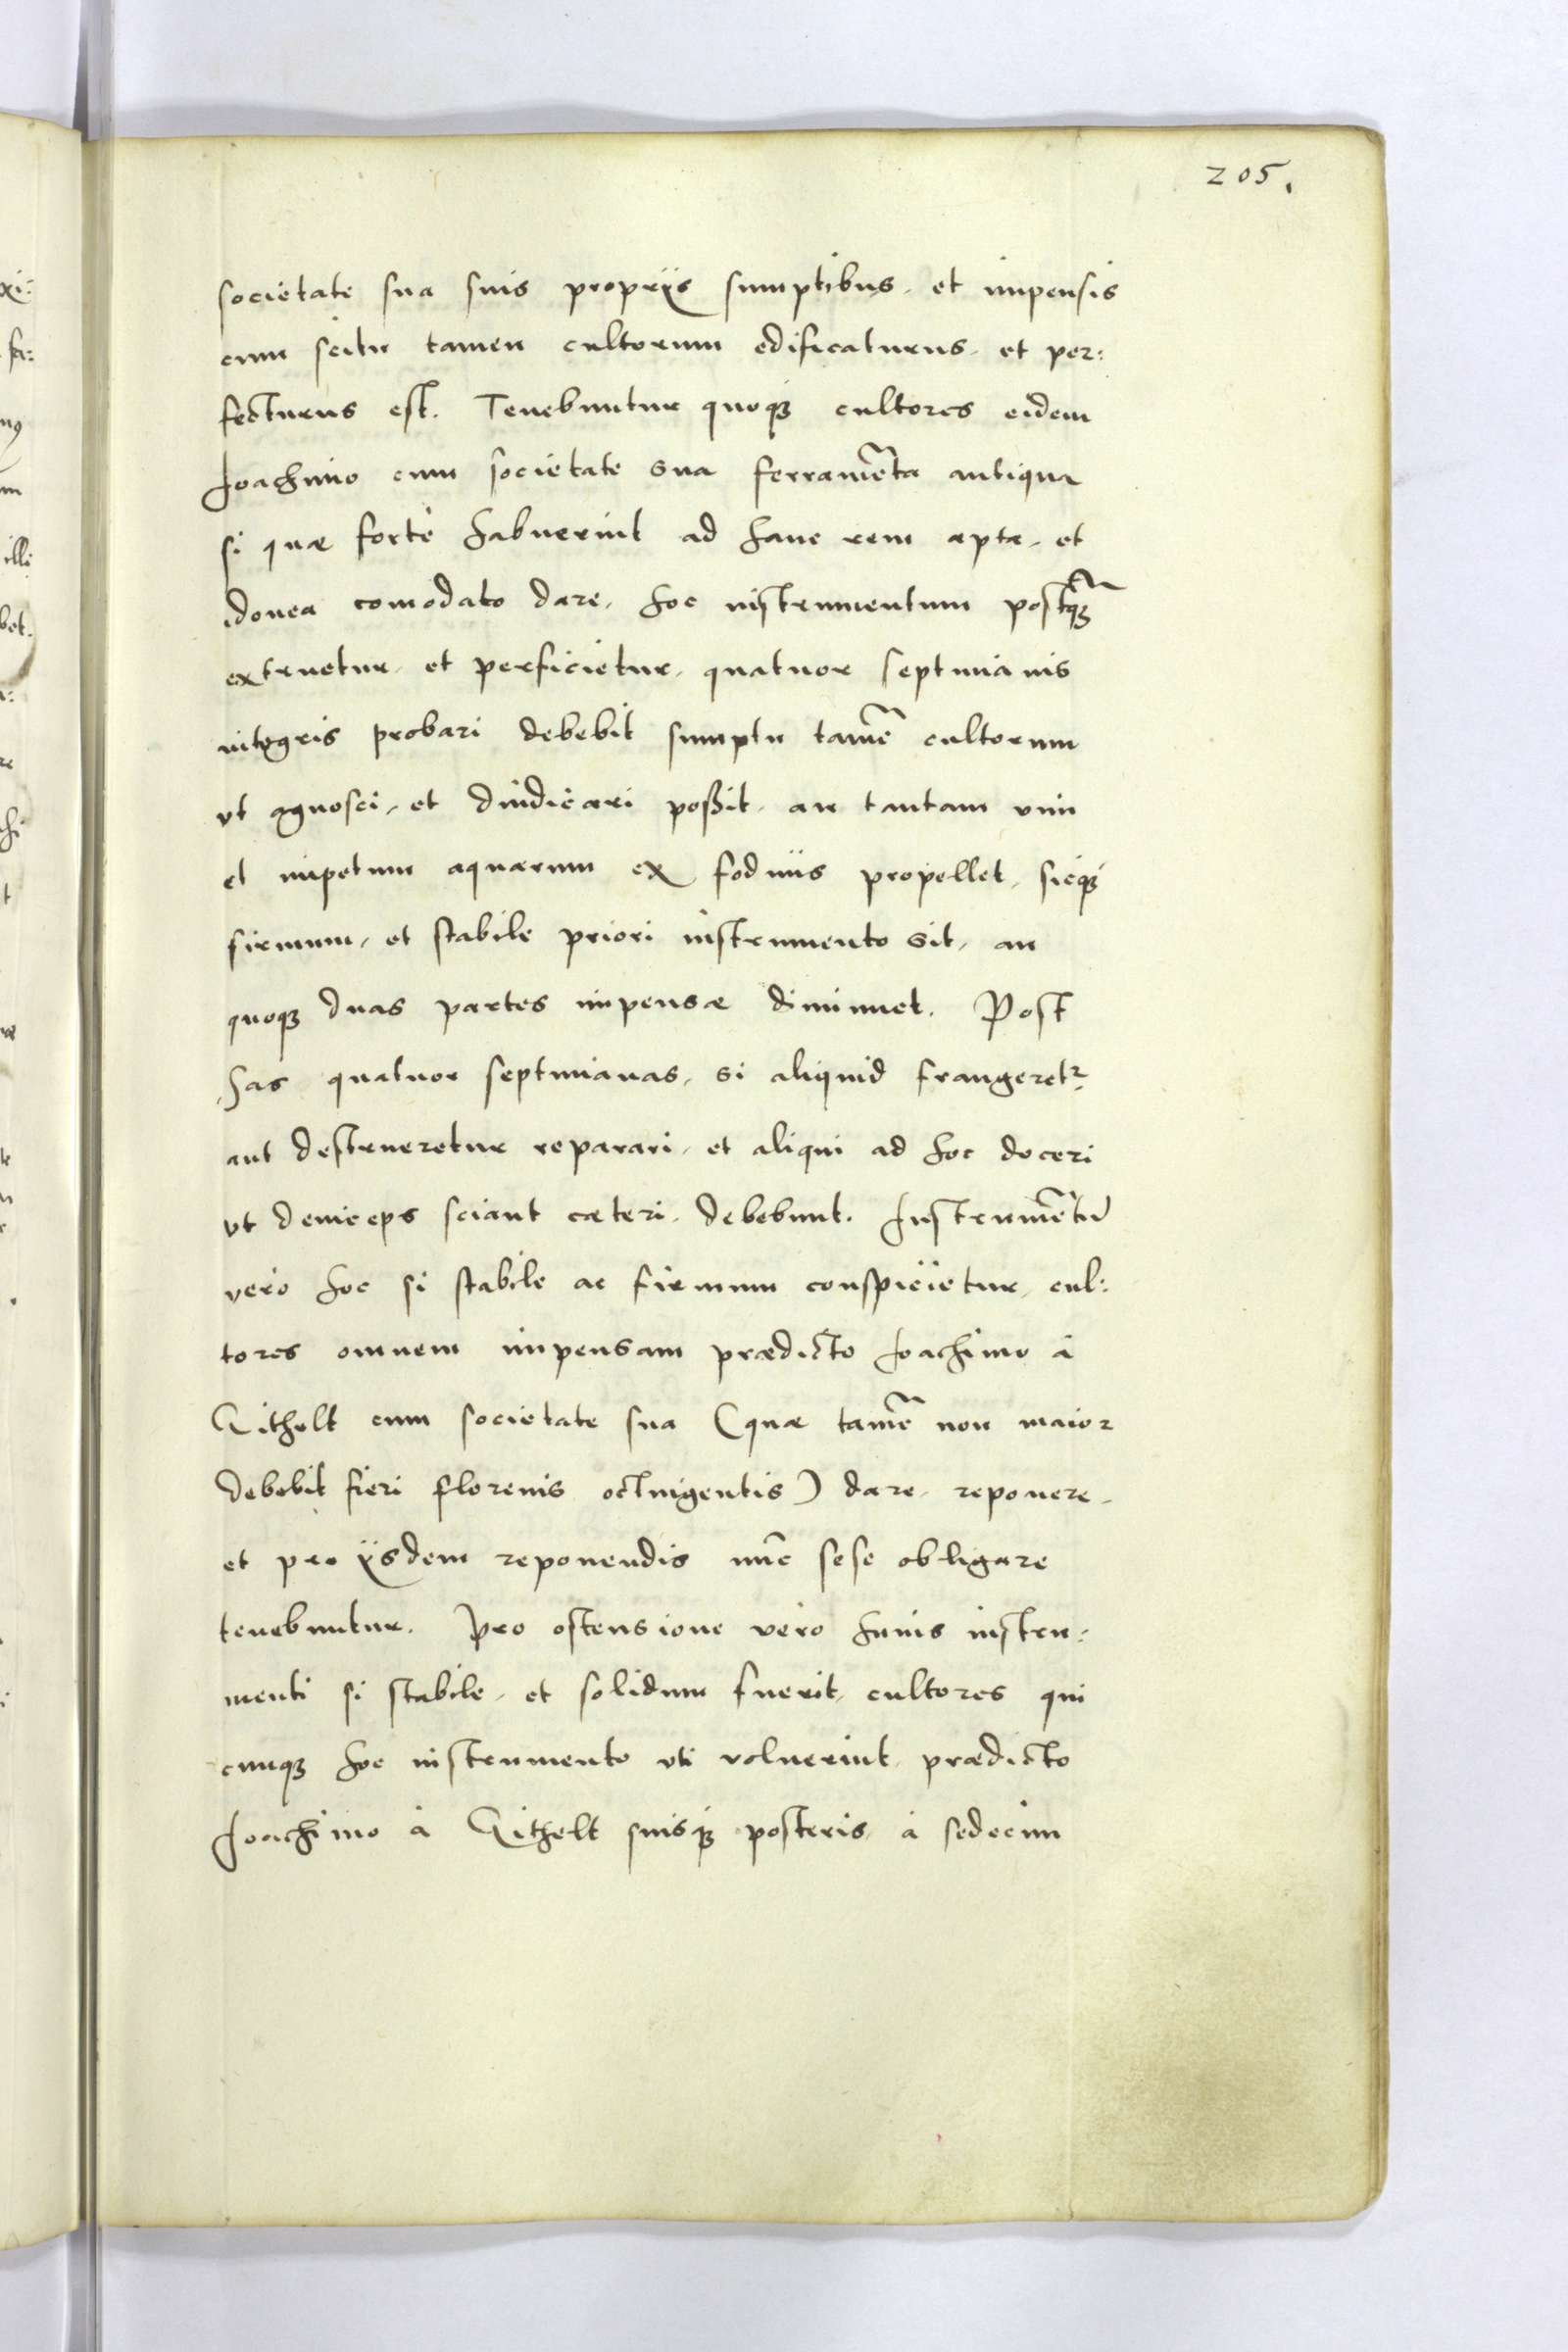 205.
societate sua suis proprijs sumptibus, et impensis
cum scitu tamen cultorum edificaturus, et per:
fecturus est. Tenebuntur quoq3 cultores eidem
Joachimo cum societate sua ferramēta antiqua
si quæ fortè habuerint ad hanc rem apta, et
idonea comodato dare, hoc instrumentum postq̃3
extruetur, et perficietur, quatuor septimanis
integris probari debebit sumptu tamē cultorum
vt agnosci, et diiudicari poßit, an tantam vim
et impetum aquarum ex fodinis propellet, sicq3
firmum, et stabile priori instrumento sit, an
quoq3 duas partes impensæ diminuet. Post
has quatuor septimanas, si aliquid frangeretr
aut destrueretur reparari, et aliqui ad hoc doceri
vt deinceps sciant cæteri, debebunt. Instrumētū
vero hoc si stabile ac firmum conspicietur, cul:
tores omnem impensam prædicto Joachimo à
Githelt cum societate sua (quæ tamē non maior
debebit fieri florenis octingentis) dare, reponere,
et pro ijsdem reponendis nūc sese obligare
tenebuntur. Pro ostensione vero huius instru:
menti si stabile, et solidum fuerit, cultores qui
cunq3 hoc instrumento vti voluerint, prædicto
Joachimo à Githelt suisq3 posteris, à sedecim